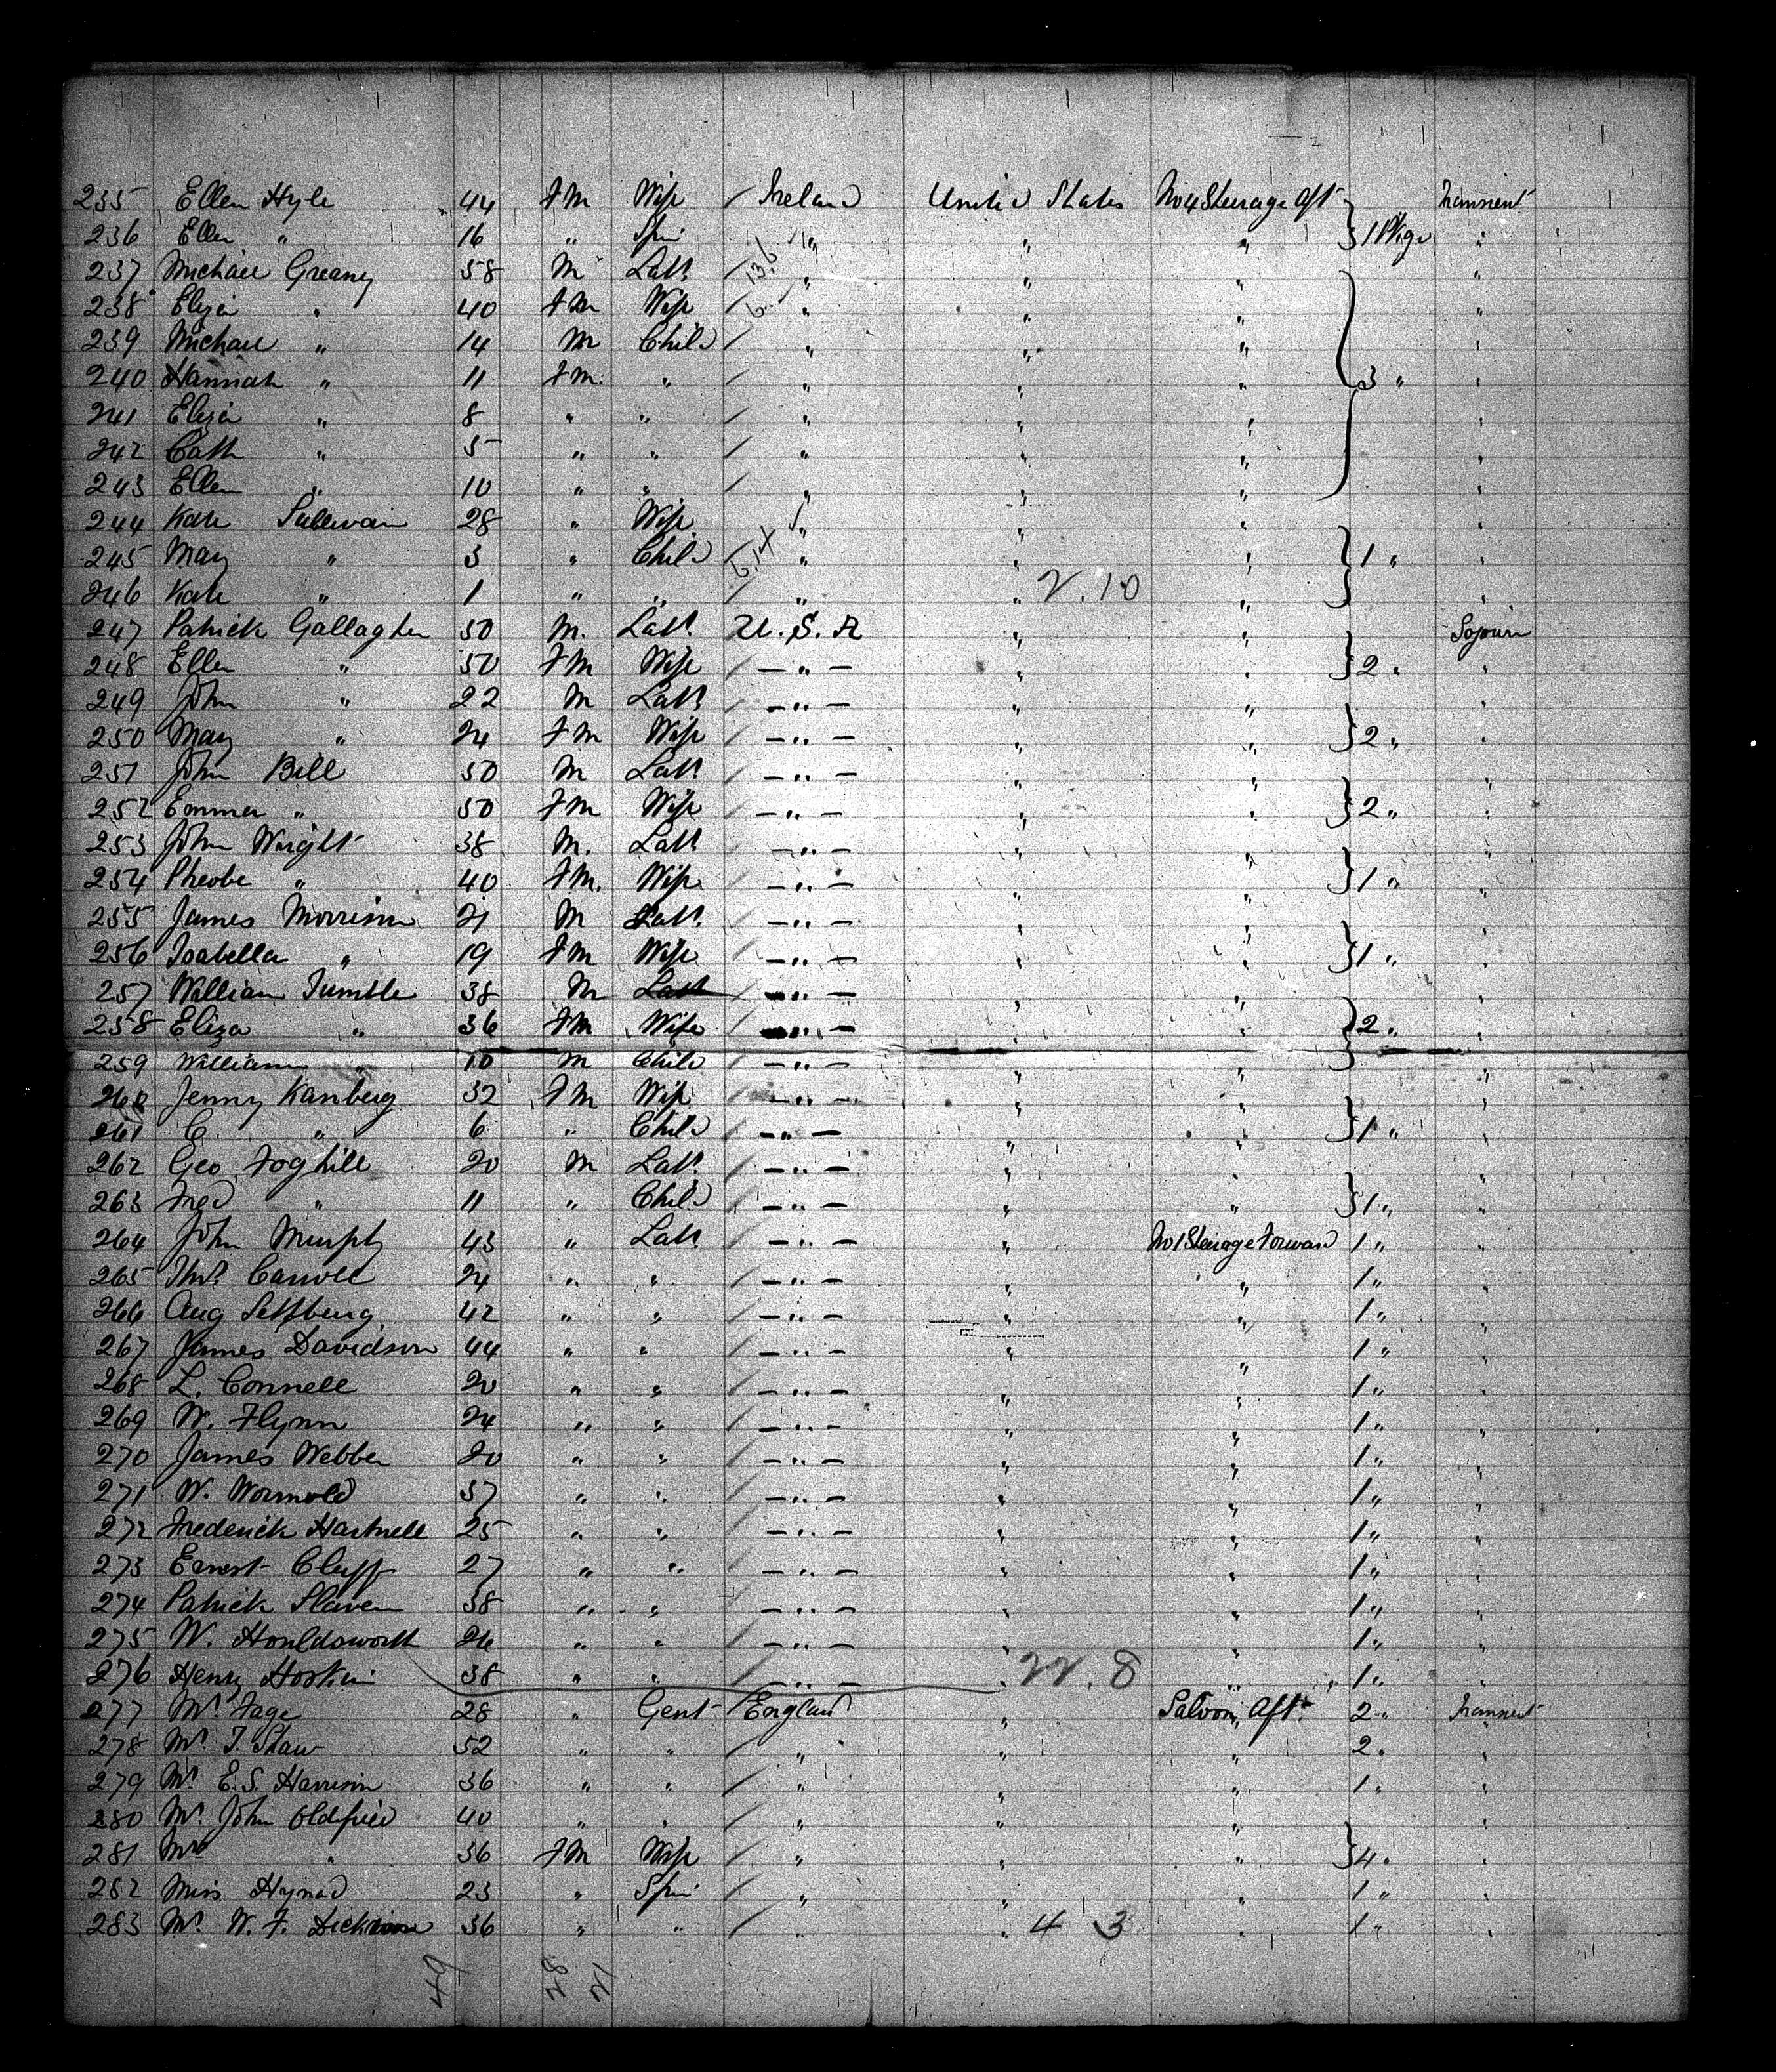 235 Ellen Hyle 44 Fm Wife / Ireland United States No 4 Steerage Aft Transient
236 Ellen " 16 " Spin / " " " } 1 Pkge "
237 Michael Greany 58 M Lab. / 136 " " " "
238 Eliza " 40 Fm Wife / 6 " " " "
239 Michael " 14 M Child / " " " "
240 Hannah " 11 Fm. " / " " " } 3 " "
241 Eliza " 8 " " / " " " "
242 Cath " 5 " " / " " " "
243 Ellen " 10 " " / " " " "
244 Kate Sullivan 28 " Wife / " " " "
245 Mary " 3 " Child 6,14 " " " } 1 " "
246 Kate " 1 " " / " " 2.10 " "
247 Patrick Gallagher 50 M. Lab. U.S.A " " Sojourn
248 Ellen " 50 Fm Wife / — " — " " } 2 " "
249 John " 22 M Lab. / — " — " " "
250 Mary " 24 Fm Wife / — " — " " } 2 " "
251 John Bell 50 M Lab. / — " — " " "
252 Emma " 50 Fm Wife / — " — " " } 2 " "
253 John Wright 38 M. Lab. — " — " " "
254 Pheobe " 40 Fm. Wife / — " — " " } 1 " "
255 James Morrison 21 M Lab. / — " — " " "
256 Isabella " 19 Fm Wife / — " — " " } 1 " "
257 William Tumble 38 M Lab. — " — " " "
258 Eliza " 36 Fm Wife / — " — " " } 2 " "
259 William " 10 M Child — " — " " "
260 Jenny Kanberg 32 Fm Wife — " — " " "
261 C. " 6 " Child / — " — " " } 1 " "
262 Geo. Foghill 20 M Lab. / — " — " " "
263 Fred " 11 " Child / — " — " " } 1 " "
264 John Murphy 43 " Lab. / — " — " No 1 Steerage Forward 1 " "
265 Thos. Carroll 24 " " / — " — " " 1 " "
266 Aug 42 " " / — " — " " 1 " "
267 James Davidson 44 " " / — " — " " 1 " "
268 L. Connell 20 " " / — " — " " 1 " "
269 W. Flynn 24 " " / — " — " " 1 " "
270 James Webber 20 " " / — " — " " 1 " "
271 W. Wormold 37 " " / — " — " " 1 " "
272 Frederick Hartnell 25 " " / — " — " " 1 " "
273 Ernest Cluff 27 " " / — " — " " 1 " "
274 Patrick Slaven 38 " " / — " — " " 1 " "
275 W. Houldsworth 26 " " / — " — " " 1 " "
276 Henry Hoskin 38 " " / — " — " 22.8 " 1 " "
277 Mr. Fage 28 " Gent / England " Saloon, Aft. 2 " Transient
278 Mr. T. Shaw 52 " " / " " " 2 " "
279 Mr. E.S. Harrison 36 " " / " " " 1 " "
280 Mr. John Oldfield 40 " " / " " " "
281 Mrs " 36 Fm Wife / " " " } 4 " "
282 Miss Hynad 23 " Spin / " " " 1 " "
283 Mr. W. F. Dickinson 36 " " / " " 4 3 " 1 " "
49 28 21